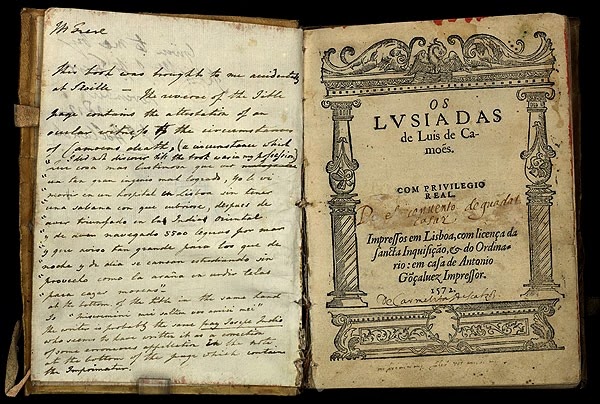 Mr Frere
This book was brought to me accidentally
at Seville — The reverse of the Title
page contains the attestation of an
ocular witness to the circumstances
of Camoens death, (a circumstance which
I did not discover till the book was in my possession)
" que cosa mas lastimosa que ver un
tan gran ingenio mal logrado, yo lo vi
" morir en un hospital en Lisboa sin tener
" una sabana con que cubrirse, despues de
" aver triunfado en la India Oriental
" y de aver navegado 5500 leguas por mar
" y que aviso tan grande para los que de
" noche y de dia se cansan estudiando sin
" provecho como la araña en urdir telas
" para cazar moscas"
at the bottom of the title in the same hand
is
the writer is probably the same fray Josepe Indio
who seems to have written it as a correction
of some erroneous application in the note
at the bottom of the page which contains
the Imprimatur.
OS
LVSIADAS
de Luis de Ca-
moẽs.
COM PRIVILEGIO
REAL.
Impressos em Lisboa, com licença da
sancta Inquisição, & do Ordina-
rio: em casa de Antonio
Gõçaluez Impressor.
1572.